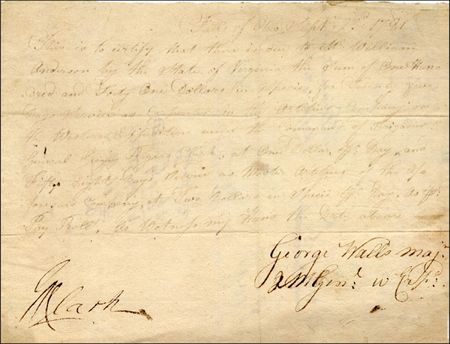 Falls of Ohio Sept 1781
This is to certify that there is due to Mr William
Anderson by the State of Virginia the Sum of One Hun
dred and Forty One Dollars in Specie, for Twenty five
Days Service as in the Artificer Company on
the Western Expedition under the Command of Brigadier
General George Rogers Clark, at One Dollar Pr Day, and
Fifty Eight Days Service as Master Artificer of the
Company, at Two Dollars in Specie Pr Day, as Pr
Pay Roll. As Witness my Hand the Date above
George Walls Maj.
GRClark